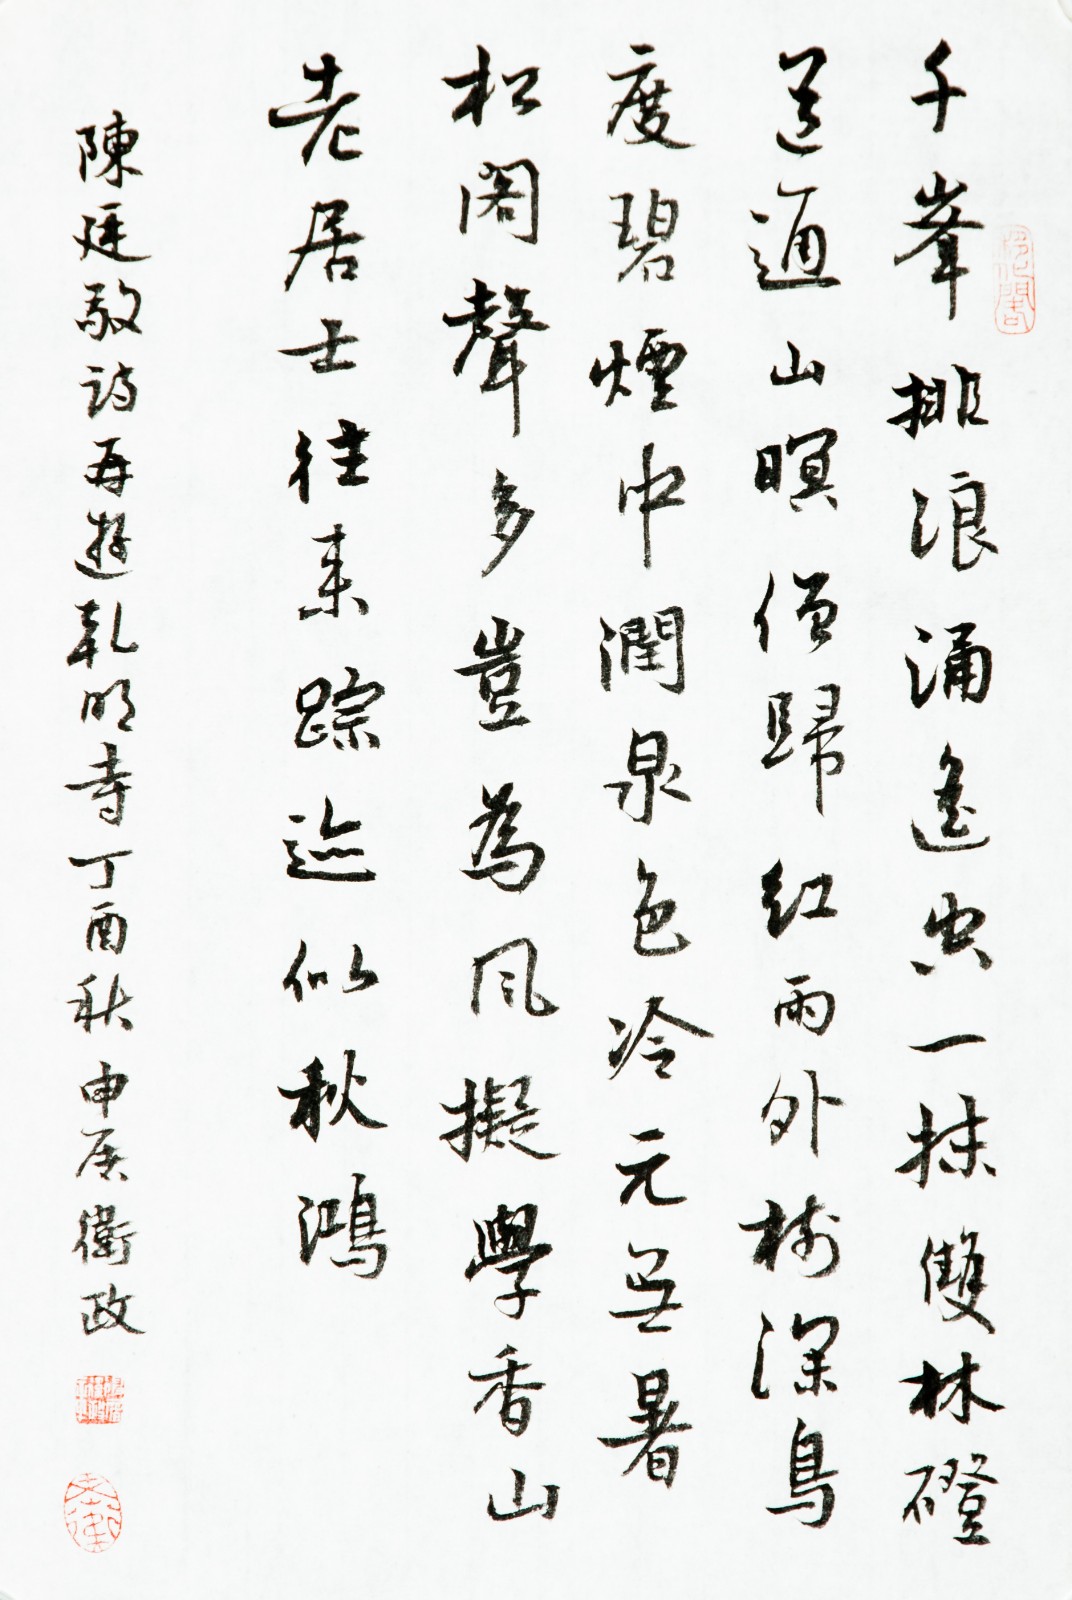 千峯排浪涌遙空一抹雙林磴
道通山暝僧歸紅雨外樹深鳥
度碧煙中澗泉色冷元無暑
松閣聲多豈為風擬學香山
老居士往来踪迹似秋鴻
陳廷敬詩再遊乾明寺丁酉秋申衛政